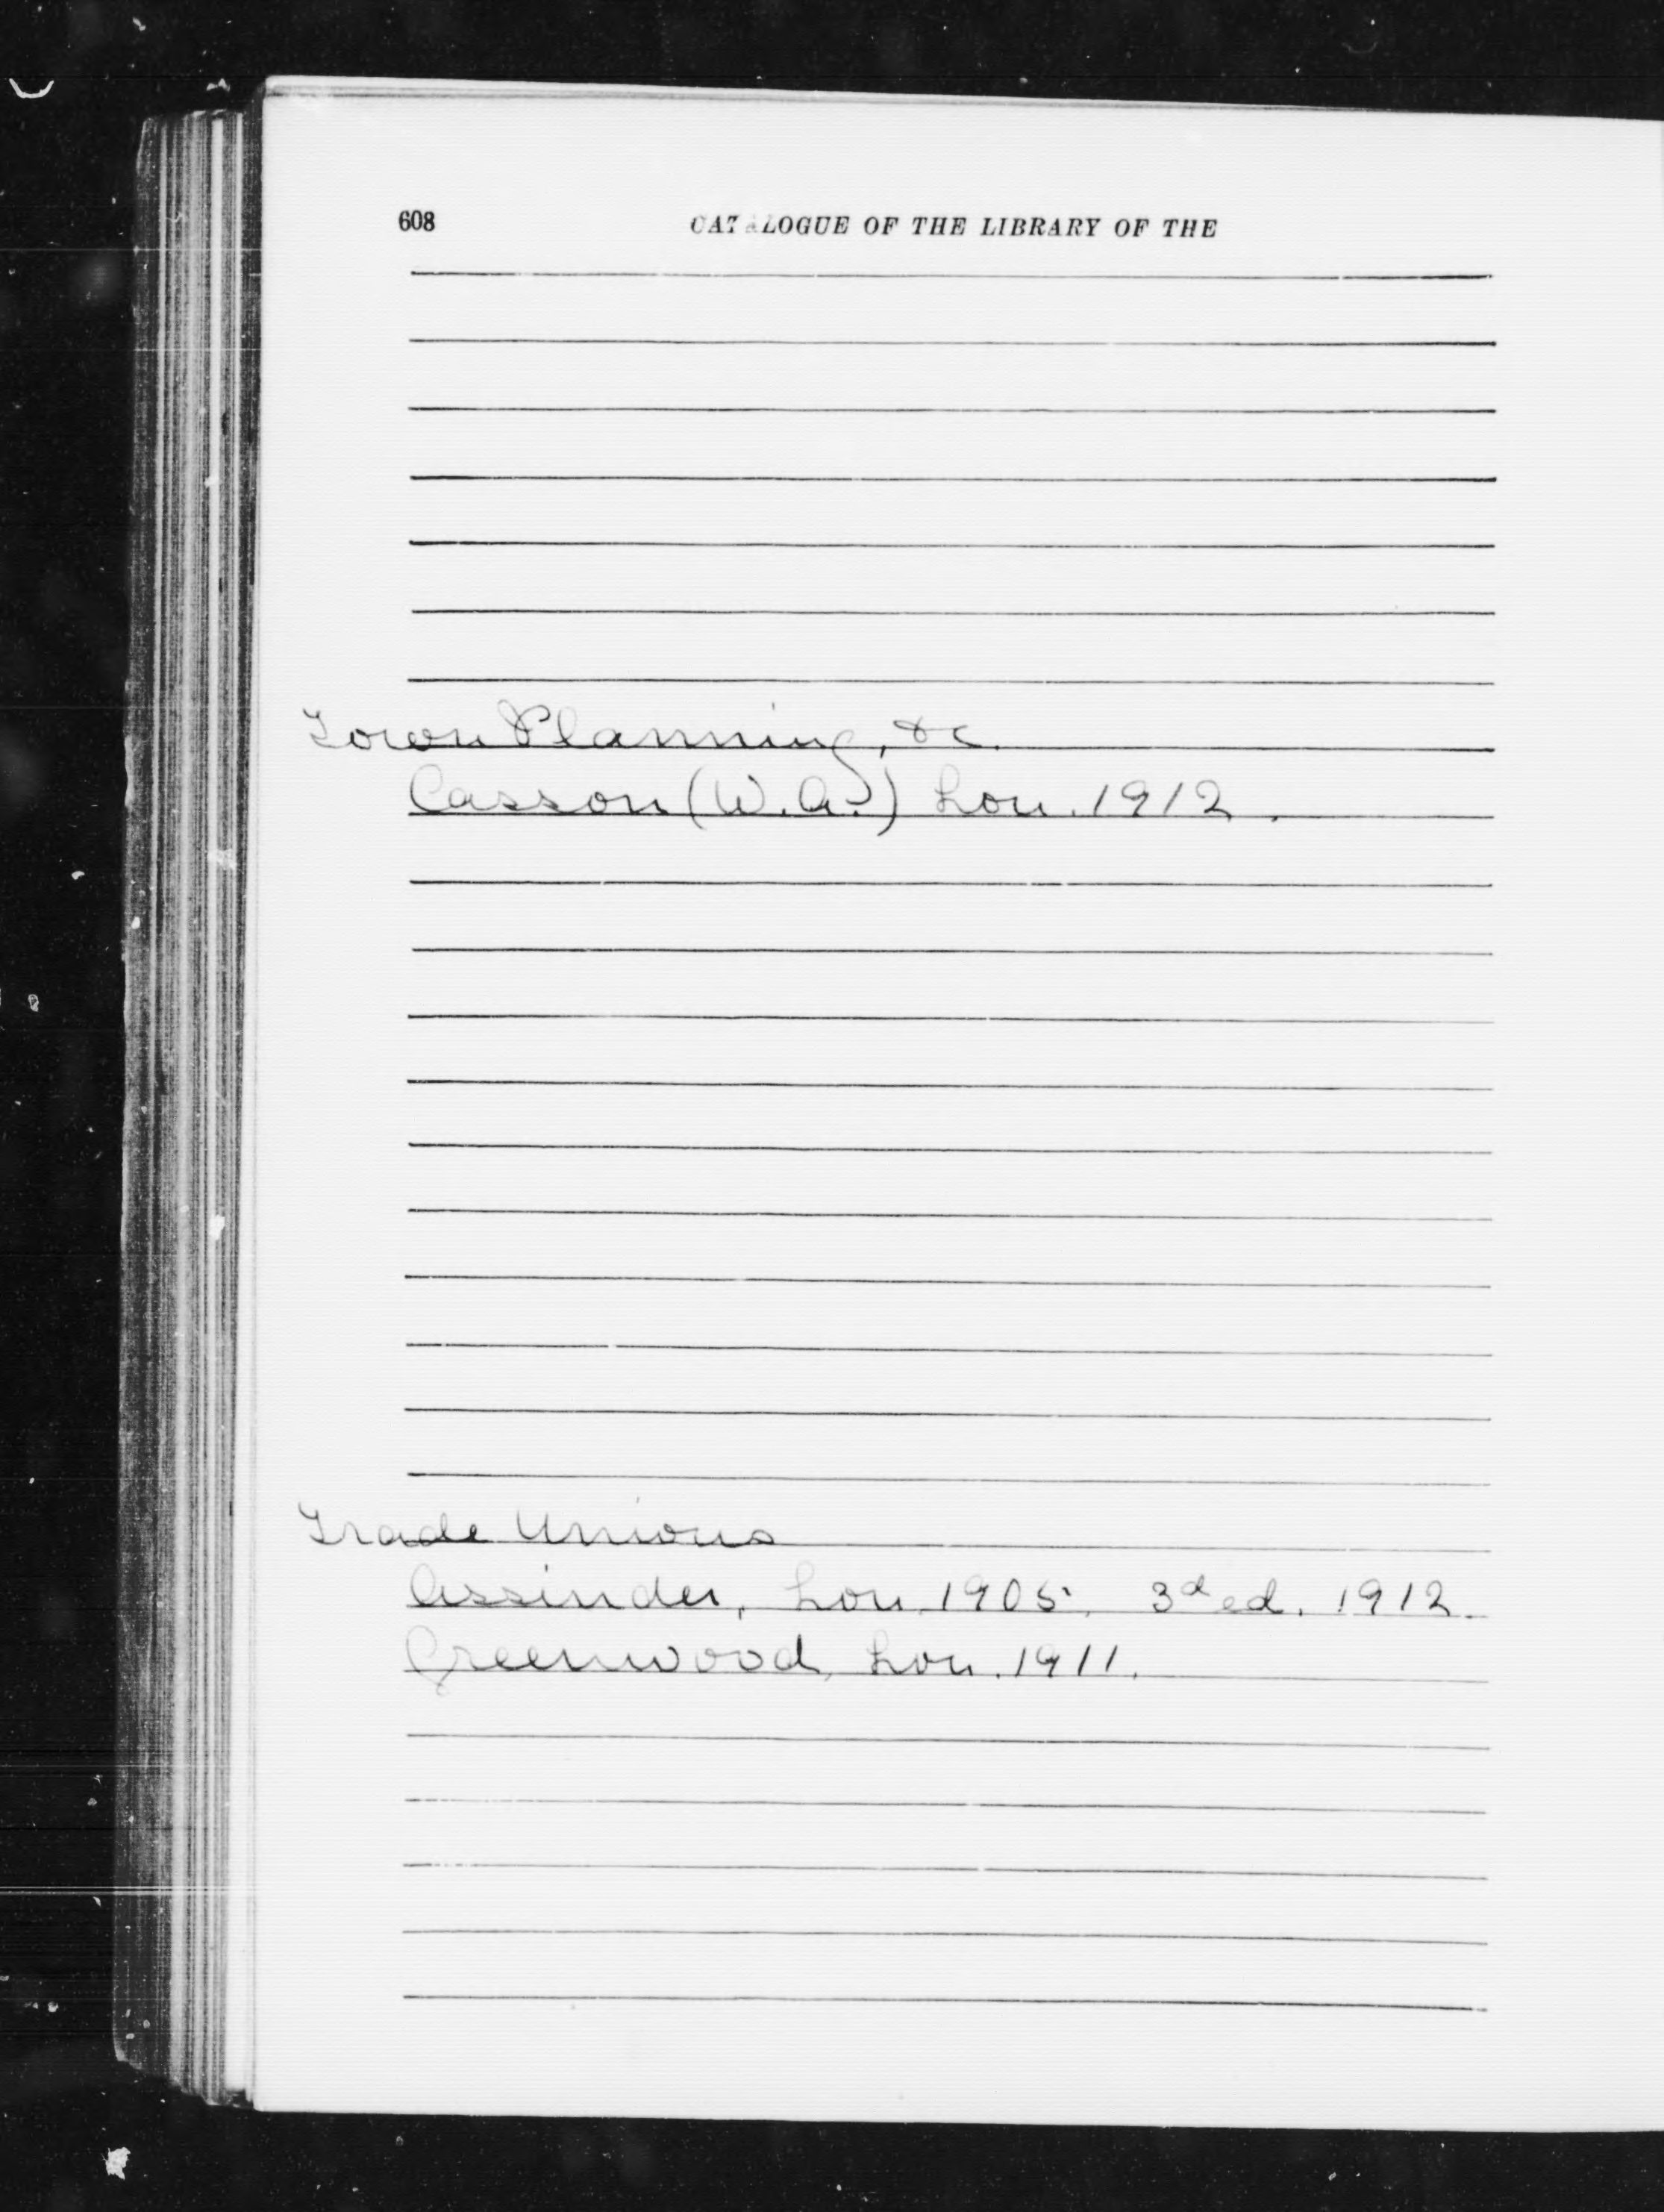 608
CATALOGUE OF THE LIBRARY OF THE
Town Planning, &c.
Casson (W. A.) Lon. 1912.
Trade Unions
Assinder, Lon. 1905. 3d ed. 1912.
Greenwood, Lon. 1911.